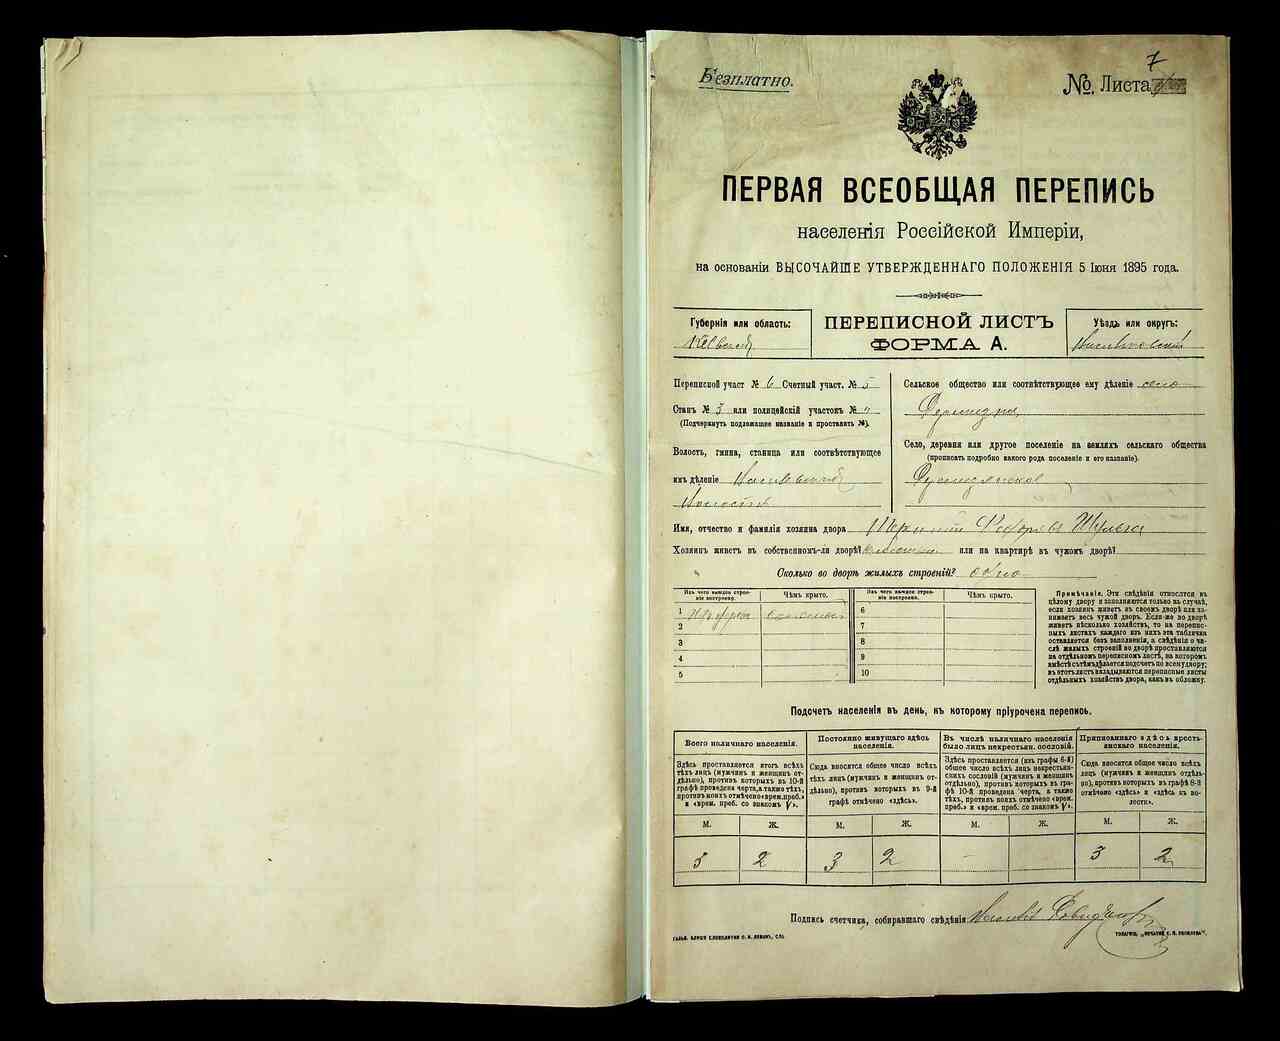 Безплатно.
7
№. Листа
ПЕРВАЯ ВСЕОБЩАЯ ПЕРЕПИСЬ
населенія Россійской Имперіи,
на основаніи ВЫСОЧАЙШЕ УТВЕРЖДЕННАГО ПОЛОЖЕНІЯ 5 Іюня 1895 года.
Губернія или область:
ПЕРЕПИСНОЙ ЛИСТЪ
ФОРМА А.
Уѣздъ или округъ:
Переписной участ № 6 Счетный участ. № 5
Станъ № 3 или полицейскій участокъ № "
(Подчеркнуть подлежащее названіе и проставить №).
Волость, гмина, станица или соотвѣтствующее
имъ дѣленіе
Сельское общество или соотвѣтствующее ему дѣленіе село
Село, деревня или другое поселеніе на земляхъ сельскаго общества
(прописать подробно какого рода поселеніе и его названіе).
Имя, отчество и фамилія хозяина двора Шульга
Хозяинъ живетъ въ собственномъ-ли дворѣ? или на квартирѣ въ чужомъ дворѣ?
Сколько во дворѣ жилыхъ строеній? одно
Изъ чего каждое строеніе построено. Чѣмъ крыто. Изъ чего каждое строеніе построено. Чѣмъ крыто.
1 6
2 7
3 8
4 9
5 10
Примѣчаніе. Эти свѣдѣнія относятся къ
цѣлому двору и заполняются только въ случаѣ,
если хозяинъ живетъ въ своемъ дворѣ или занимаетъ
весь чужой дворъ. Если-же во дворѣ
живетъ нѣсколько хозяйствъ, то на переписныхъ
листахъ каждаго изъ нихъ эта табличка
оставляется безъ заполненія, а свѣдѣнія о числѣ
жилыхъ строеній во дворѣ проставляются
на отдѣльномъ переписномъ листѣ, на которомъ
вмѣстѣ съ тѣмъ дѣлается подсчетъ по всему двору;
въ этотъ листъ вкладываются переписные листы
отдѣльныхъ хозяйствъ двора, какъ въ обложку.
Подсчетъ населенія въ день, къ которому пріурочена перепись.
Всего наличнаго населенія.
Здѣсь проставляется итогъ всѣхъ
тѣхъ лицъ (мужчинъ и женщинъ отдѣльно),
противъ которыхъ въ 10-й
графѣ проведена черта, а также тѣхъ,
противъ коихъ отмѣчено «врем. преб.»
и «врем. преб. со знакомъ V».
Постоянно живущаго здѣсь
населенія.
Сюда вносится общее число всѣхъ
тѣхъ лицъ (мужчинъ и женщинъ отдѣльно),
противъ которыхъ въ 9-й
графѣ отмѣчено «здѣсь».
Въ числѣ наличнаго населенія
было лицъ некрестьян. сословій.
Здѣсь проставляется (изъ графы 6-й)
общее число всѣхъ лицъ некрестьянскихъ
сословій (мужчинъ и женщинъ
отдѣльно), противъ которыхъ въ графѣ
10-й проведена черта, а также
тѣхъ, противъ коихъ отмѣчено «врем.
преб.» и «врем. преб. со знакомъ V».
Приписаннаго здѣсь крестьянскаго
населенія.
Сюда вносится общее число всѣхъ
лицъ (мужчинъ и женщинъ отдѣльно),
противъ которыхъ въ графѣ 8-й
отмѣчено «здѣсь» и «здѣсь къ волости».
М. Ж. М. Ж. М. Ж. М. Ж.
3 2 3 2 – 3 2
Подпись счетчика, собиравшаго свѣдѣнія